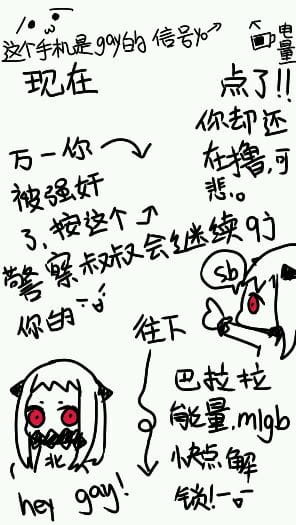 这个手机是gay的
信号yo→
电量
现在
点了!!
你却还
在撸,可
悲。
万一你
被强奸
了,按这个
警察叔叔会继续qj
你的
sb
往下
巴拉拉
能量,mlgb
快点解
锁!
北
hey gay!